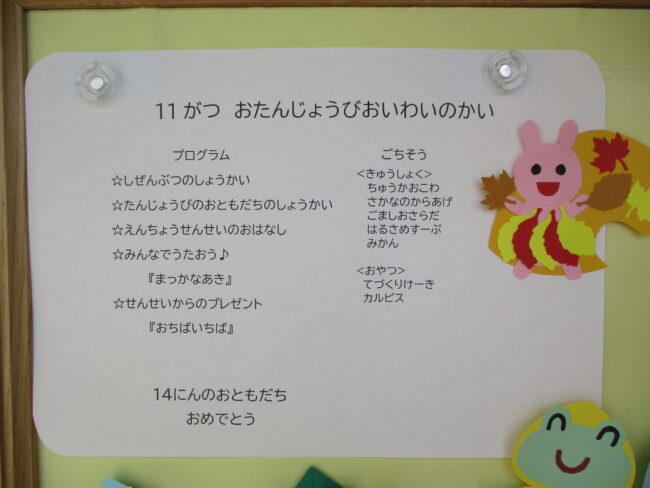 11がつ おたんじょうびおいわいのかい
プログラム
☆しぜんぶつのしょうかい
☆たんじょうびのおともだちのしょうかい
☆えんちょうせんせいのおはなし
☆みんなでうたおう♪
『まっかなあき』
☆せんせいからのプレゼント
『おちばいちば』
ごちそう
<きゅうしょく>
ちゅうかおこわ
さかなのからあげ
ごましおさらだ
はるさめすーぷ
みかん
<おやつ>
てづくりけーき
カルピス
14にんのおともだち
おめでとう